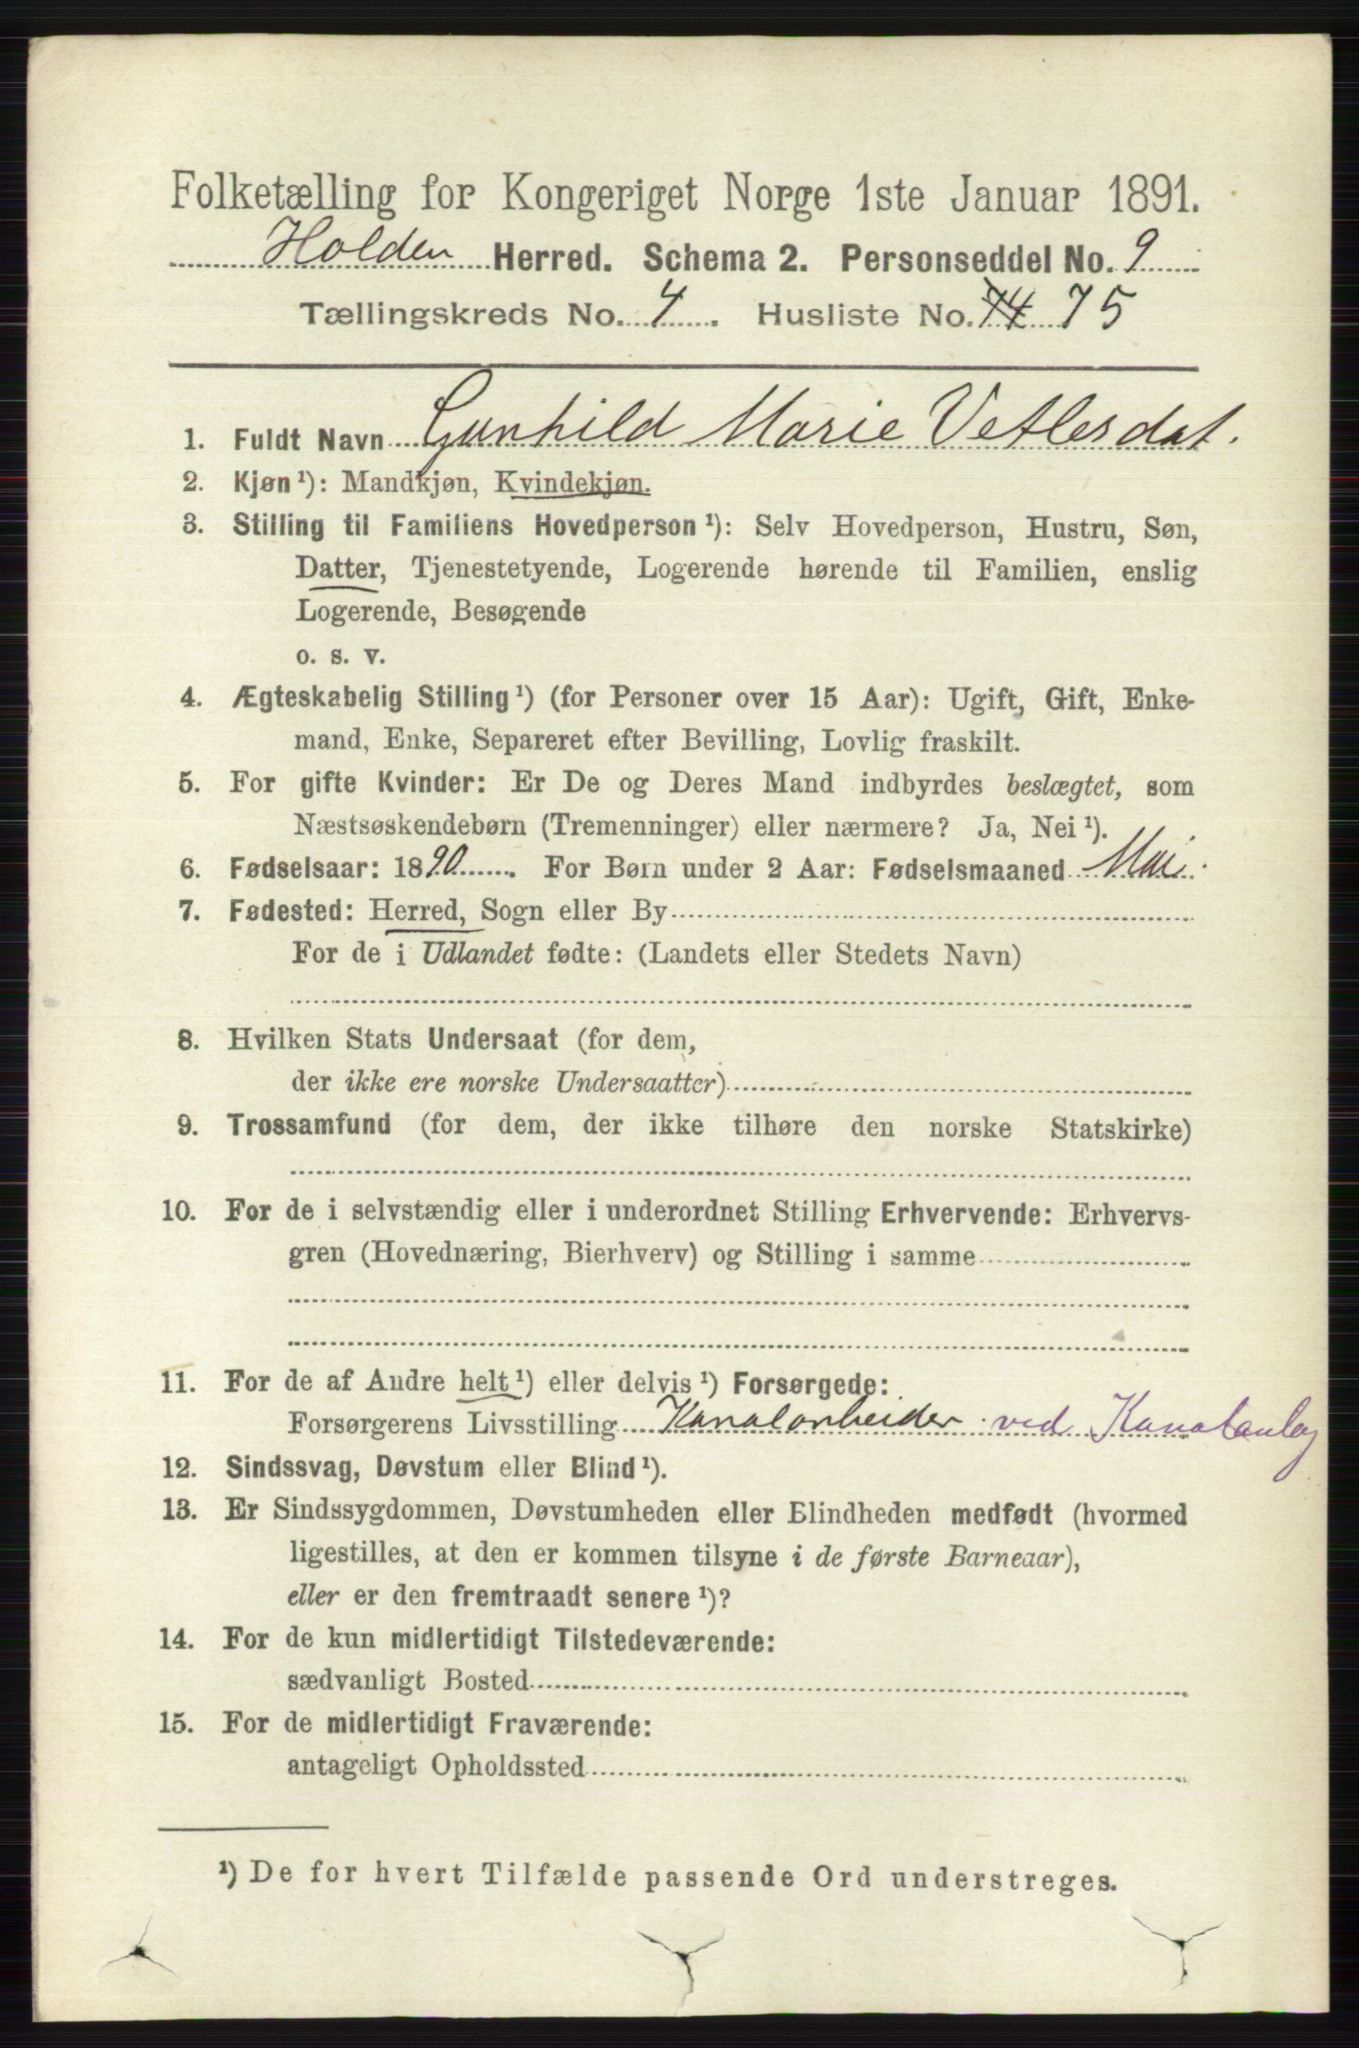 Folketælling for Kongeriget Norge 1ste Januar 1891.
Holden Herred. Schema 2. Personseddel No. 9
Tællingskreds No. 4. Husliste No. 74 75
1. Fuldt Navn Gunhild Marie Vetlesdat.
2. Kjøn¹): Mandkjøn, Kvindekjøn.
3. Stilling til Familiens Hovedperson¹): Selv Hovedperson, Hustru, Søn,
Datter, Tjenestetyende, Logerende hørende til Familien, enslig
Logerende, Besøgende
o. s. v.
4. Ægteskabelig Stilling¹) (for Personer over 15 Aar): Ugift, Gift, Enke-
mand, Enke, Separeret efter Bevilling, Lovlig fraskilt.
5. For gifte Kvinder: Er De og Deres Mand indbyrdes beslægtet, som
Næstsøskendebørn (Tremenninger) eller nærmere? Ja, Nei¹).
6. Fødselsaar: 1890. For Børn under 2 Aar: Fødselsmaaned Mai.
7. Fødested: Herred, Sogn eller By
For de i Udlandet fødte: (Landets eller Stedets Navn)
8. Hvilken Stats Undersaat (for dem,
der ikke ere norske Undersaatter)
9. Trossamfund (for dem, der ikke tilhøre den norske Statskirke)
10. For de i selvstændig eller i underordnet Stilling Erhvervende: Erhvervs-
gren (Hovednæring, Bierhverv) og Stilling i samme
11. For de af Andre helt¹) eller delvis¹) Forsørgede:
Forsørgerens Livsstilling Kanalarbeider ved Kanalanlæg
12. Sindssvag, Døvstum eller Blind¹).
13. Er Sindssygdommen, Døvstumheden eller Blindheden medfødt (hvormed
ligestilles, at den er kommen tilsyne i de første Barneaar),
eller er den fremtraadt senere¹)?
14. For de kun midlertidigt Tilstedeværende:
sædvanligt Bosted
15. For de midlertidigt Fraværende:
antageligt Opholdssted
¹) De for hvert Tilfælde passende Ord understreges.